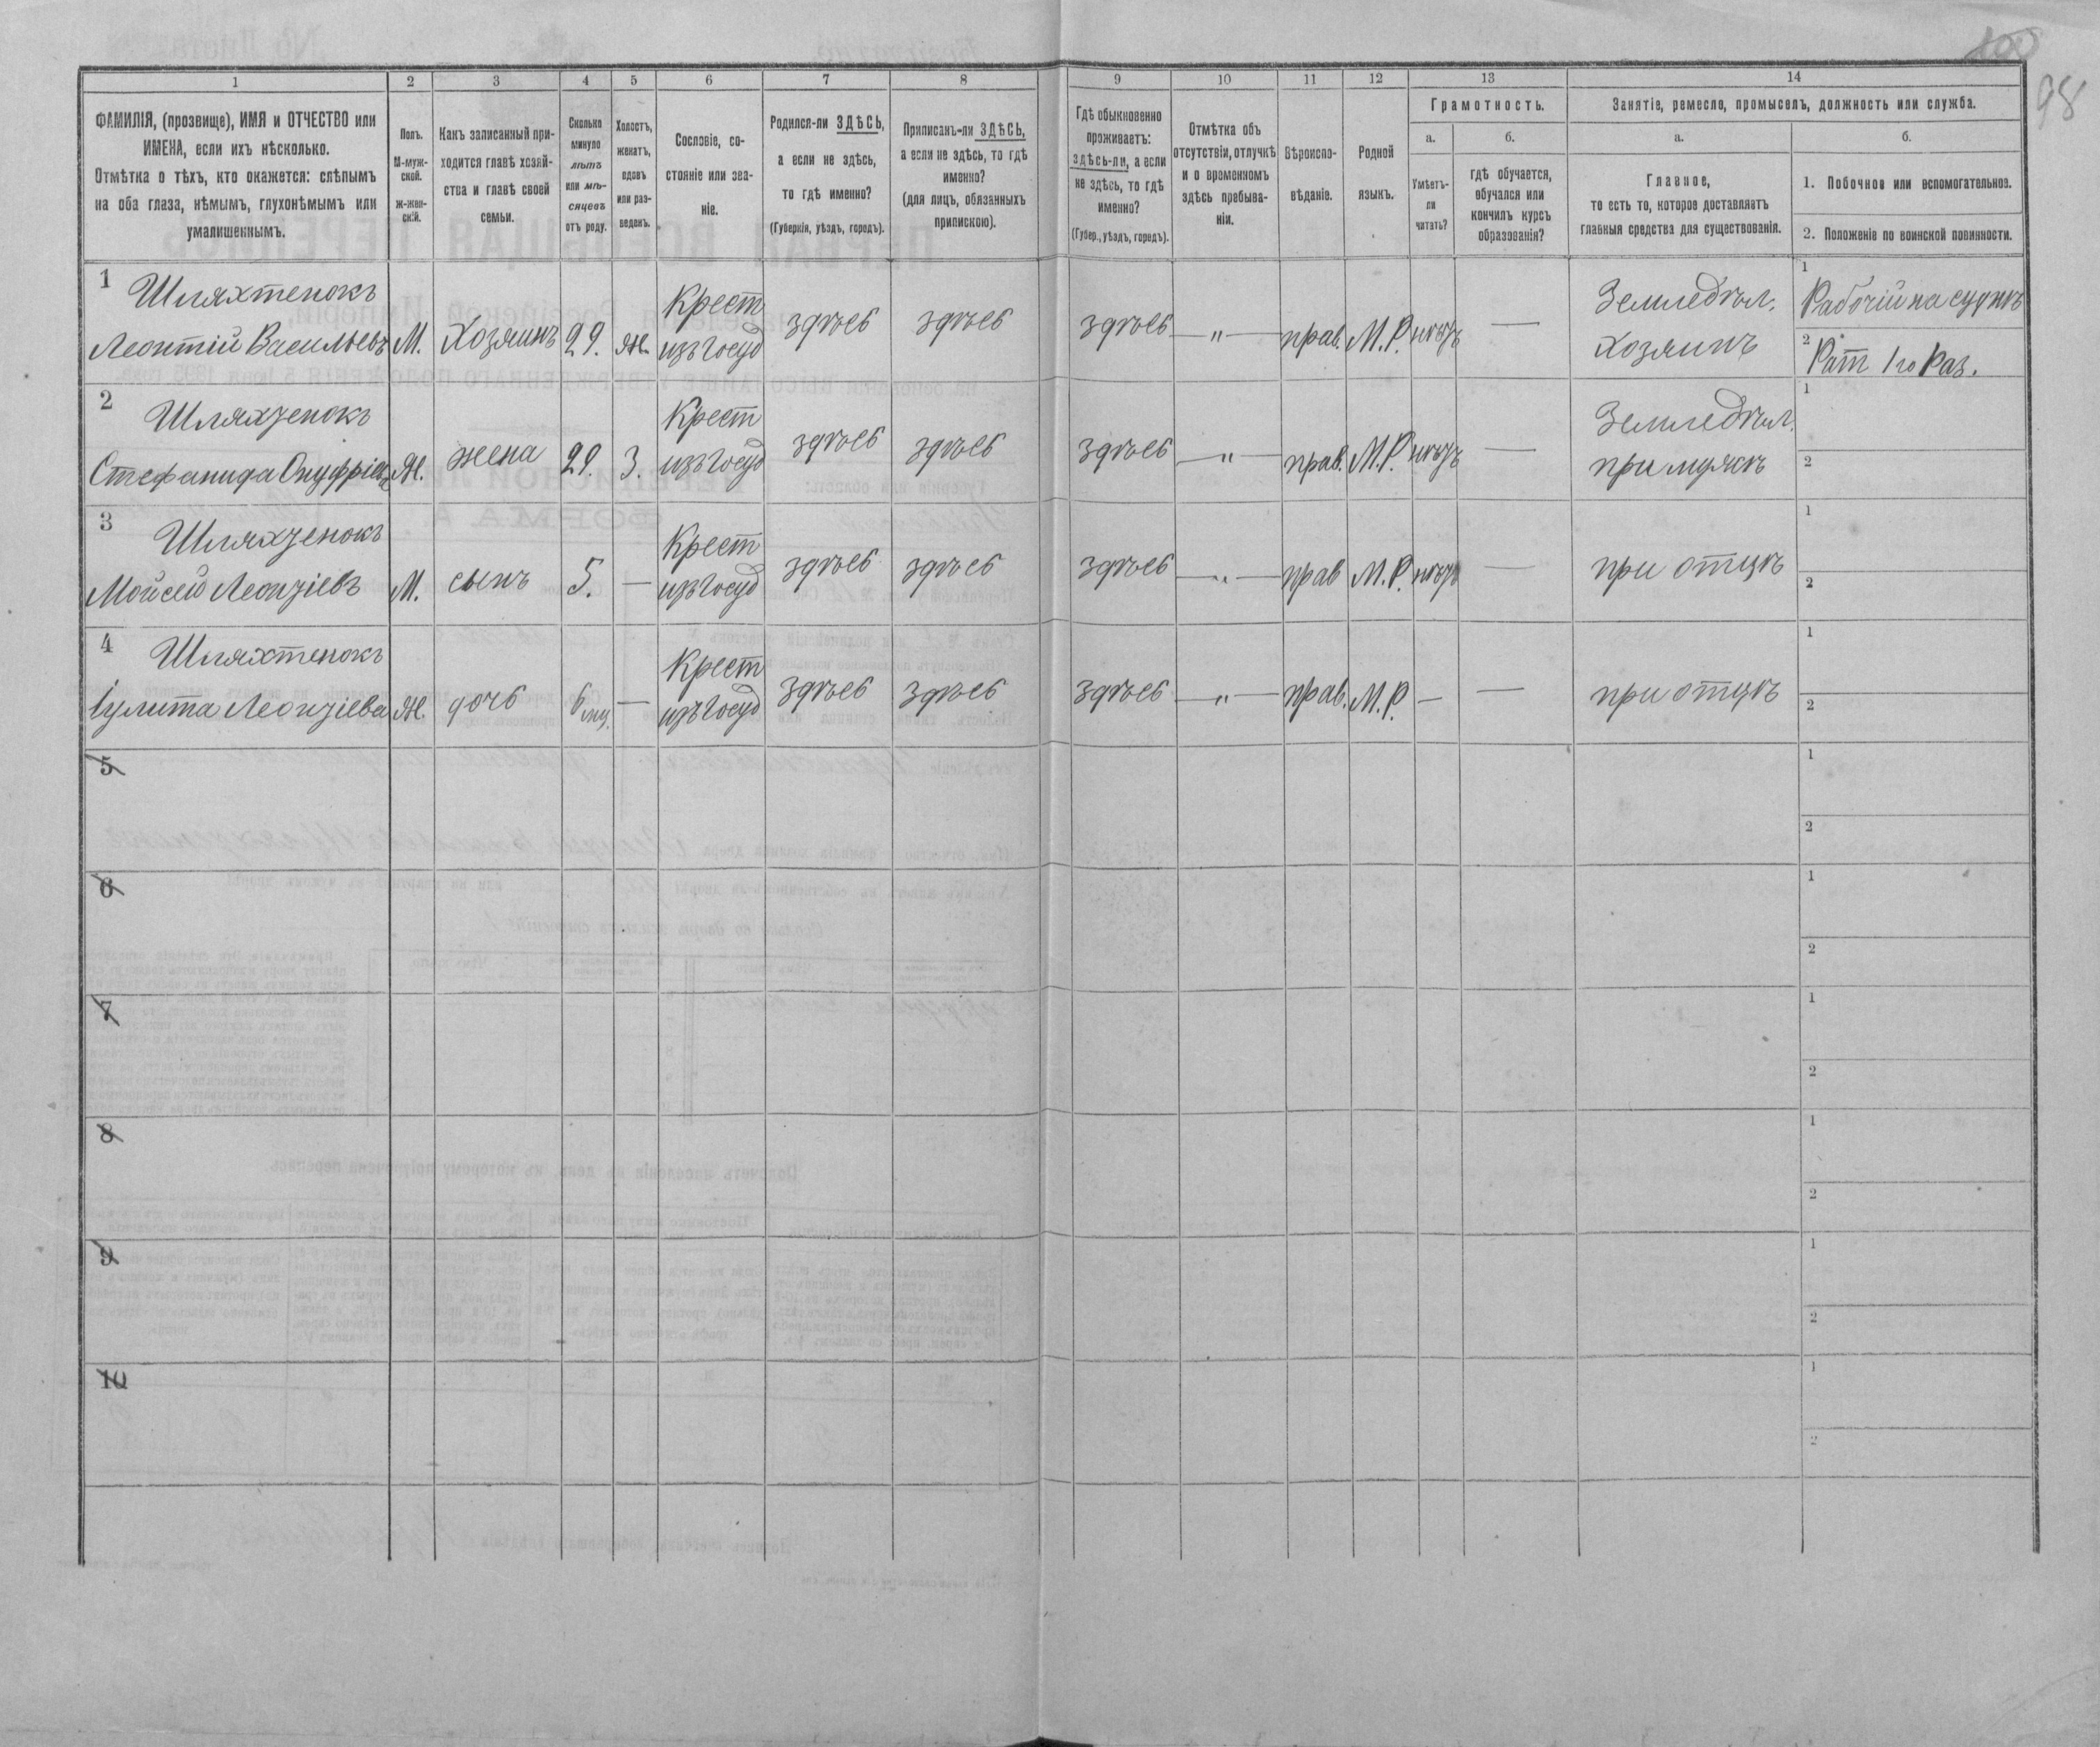 100
98
1 2 3 4 5 6 7 8 9 10 11 12 13 14
ФАМИЛІЯ, (прозвище), ИМЯ и ОТЧЕСТВО или
ИМЕНА, если ихъ нѣсколько.
Отмѣтка о тѣхъ, кто окажется: слѣпымъ
на оба глаза, нѣмымъ, глухонѣмымъ или
умалишеннымъ.
Полъ.
М-муж-
ской.
Ж-жен-
скій.
Какъ записанный при-
ходится главѣ хозяй-
ства и главѣ своей
семьи.
Сколько
минуло
лѣтъ
или мѣ-
сяцевъ
отъ роду.
Холостъ,
женатъ,
вдовъ
или раз-
веденъ.
Сословіе, со-
стояніе или зва-
ніе.
Родился-ли ЗДѢСЬ,
а если не здѣсь,
то гдѣ именно?
(Губернія, уѣздъ, городъ).
Приписанъ-ли ЗДѢСЬ,
а если не здѣсь, то гдѣ
именно?
(для лицъ, обязанныхъ
припискою).
Гдѣ обыкновенно
проживаетъ:
здѣсь-ли, а если
не здѣсь, то гдѣ
именно?
(Губер., уѣздъ, городъ).
Отмѣтка объ
отсутствіи, отлучкѣ
и о временномъ
здѣсь пребыва-
ніи.
Вѣроиспо-
вѣданіе.
Родной
языкъ.
Грамотность.
а. б.
Умѣетъ-
ли
читать?
гдѣ обучается,
обучался или
кончилъ курсъ
образованія?
Занятіе, ремесло, промыселъ, должность или служба.
а. б.
Главное,
то есть то, которое доставляетъ
главныя средства для существованія.
1. Побочное или вспомогательное.
2. Положеніе по воинской повинности.
1 Шляхтенокъ Крест Земледѣл. 1 Рабочій на суднѣ
Леонтій Васильевъ М. Хозяинъ 29. Ж. изъ Госуд здѣсь здѣсь здѣсь — " — прав. М.Р. нѣтъ — хозяинъ 2 Рат 1го Раз.
2 Шляхтенокъ Крест Земледѣл. 1
Стефанида Онуфріев Ж. жена 29. З. изъ Госуд здѣсь здѣсь здѣсь — " — прав. М.Р. нѣтъ — при мужѣ 2
3 Шляхтенокъ Крест 1
Мойсей Леонтіевъ М. сынъ 5. — изъ Госуд здѣсь здѣсь здѣсь — " — прав М.Р. нѣтъ — при отцѣ 2
4 Шляхтенокъ Крест 1
Іулита Леонтіева Ж. дочь 6 мц. — изъ Госуд здѣсь здѣсь здѣсь — " — прав. М.Р. — — при отцѣ 2
5 1
2
6 1
2
7 1
2
8 1
2
9 1
2
10 1
2